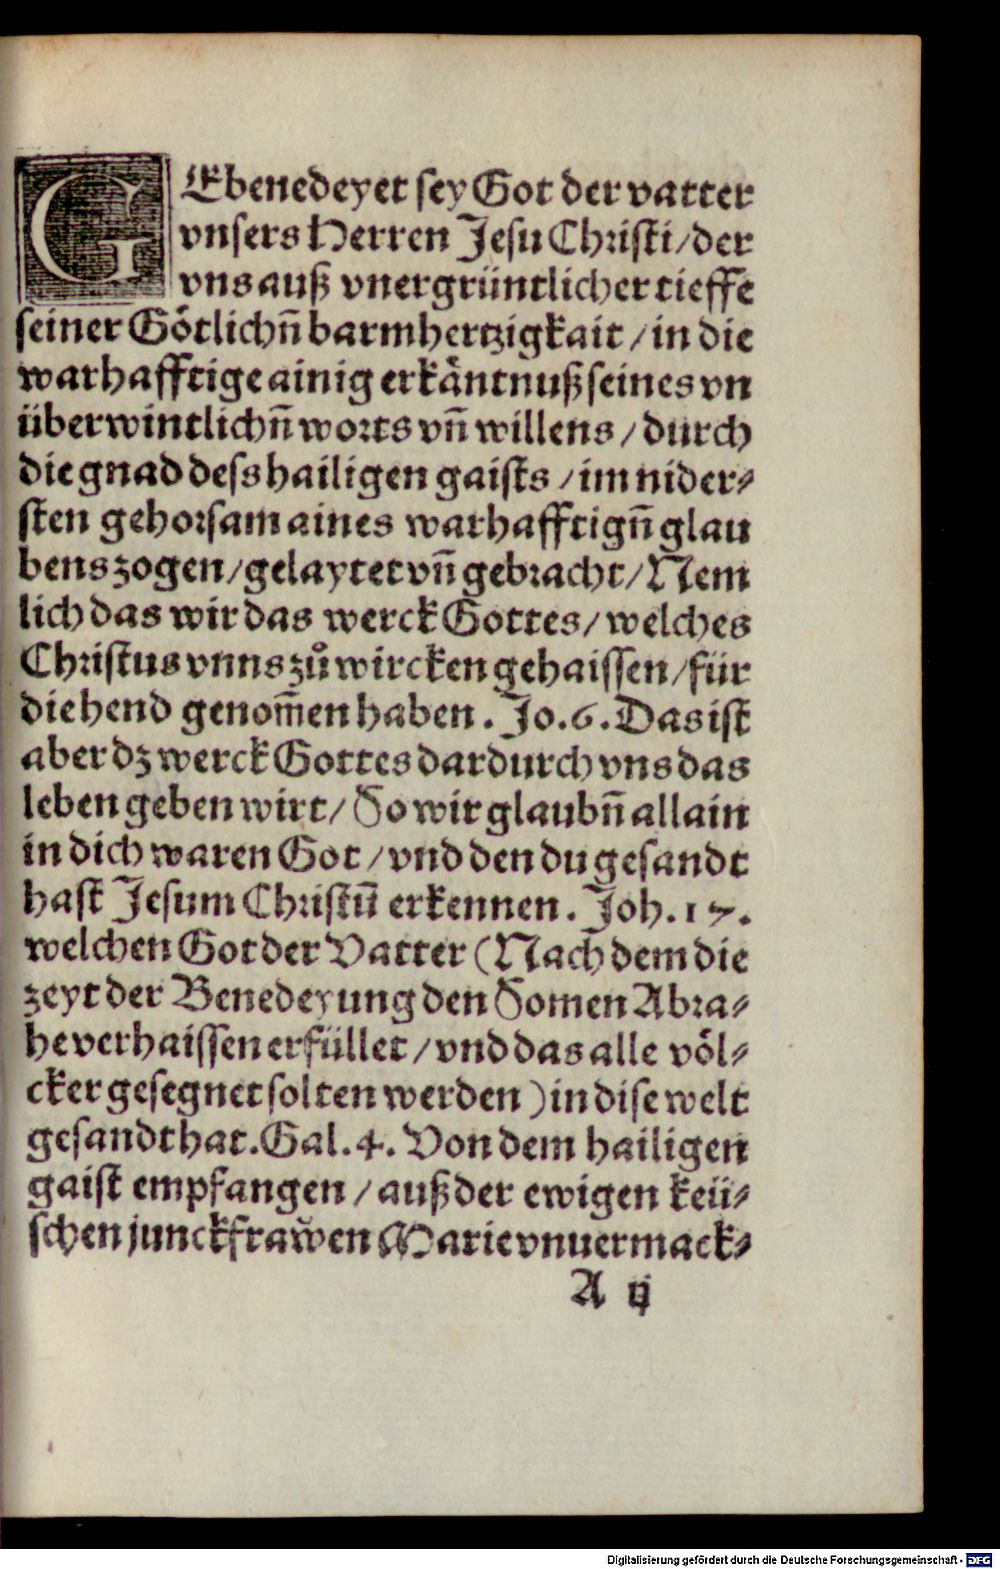 GEbenedeyet sey Got der vatter
vnsers Herren Jesu Christi/der
vns auß vnergrüntlicher tieffe
seiner Götlichn̄ barmhertzigkait/in die
warhafftige ainig erkäntnuß seines vn
überwintlichn̄ worts vn̄ willens/durch
die gnad dess hailigen gaists/im nider⸗
sten gehorsam aines warhafftign̄ glau
bens zogen/gelaytet vn̄ gebracht/Nem
lich das wir das werck Gottes/welches
Christus vnns zů wircken gehaissen/für
die hend genom̄en haben. Jo.6. Das ist
aber dz werck Gottes dardurch vns das
leben geben wirt/So wir glaubn̄ allain
in dich waren Got/vnd den du gesandt
hast Jesum Christū erkennen. Joh.17.
welchen Got der Vatter (Nach dem die
zeyt der Benedeyung den Somen Abra⸗
he verhaissen erfüllet/vnd das alle völ⸗
cker gesegnet solten werden) in dise welt
gesandt hat. Gal.4. Von dem hailigen
gaist empfangen/auß der ewigen keü⸗
schen junckfraw̆en Marie vnuermack⸗
A ij
Digitalisierung gefördert durch die Deutsche Forschungsgemeinschaft - DFG